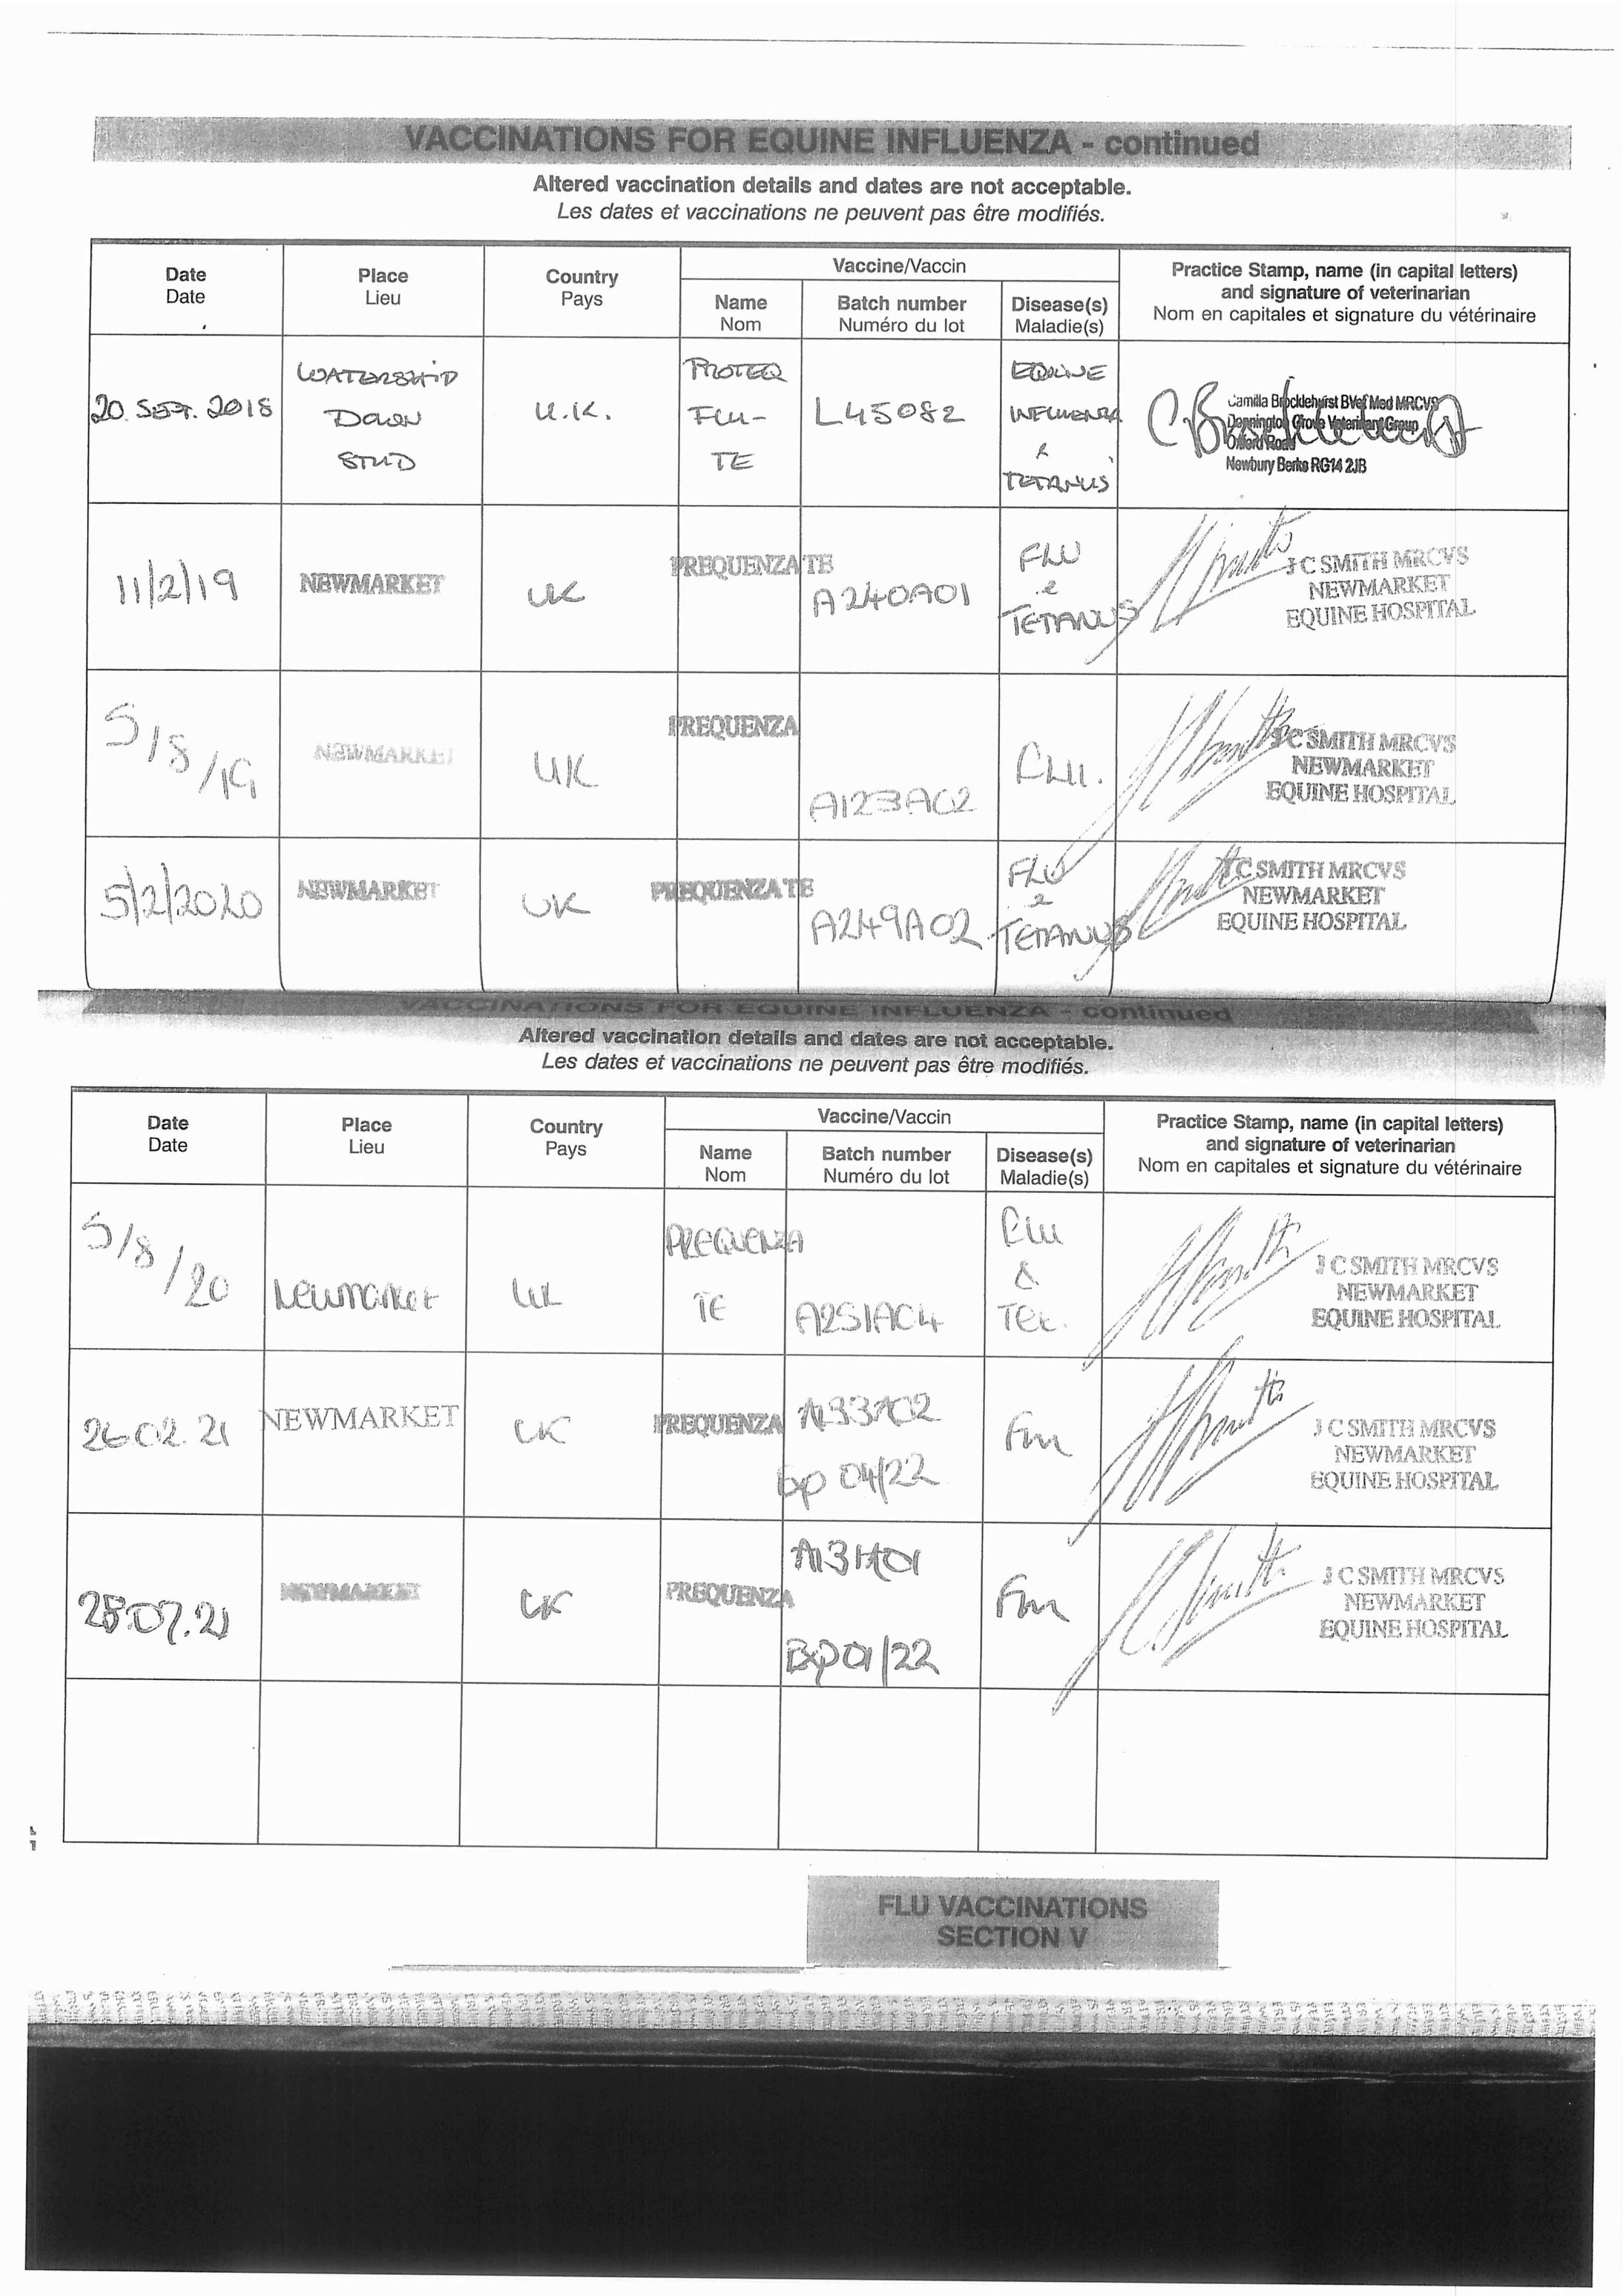 VACCINATIONS FOR EQUINE INFLUENZA - continued
Altered vaccination details and dates are not acceptable.
Les dates et vaccinations ne peuvent pas être modifiés.
Date
Date
Place
Lieu
Country
Pays
Vaccine/Vaccin
Name
Nom
Batch number
Numéro du lot
Disease(s)
Maladie(s)
Practice Stamp, name (in capital letters)
and signature of veterinarian
Nom en capitales et signature du vétérinaire
20. SEPT. 2018
WATERSHIP
DOWN
STUD
U.K.
PROTEQ
FLU-
TE
L45082
EQUINE
INFLUENZA
&
TETANUS
Camilla Brocklehurst BVet Med MRCVS
Donnington Grove Veterinary Group
Oxford Road
Newbury Berks RG14 2JB
11/2/19
NEWMARKET
UK
PREQUENZA TE
A240A01
FLU
&
TETANUS
J C SMITH MRCVS
NEWMARKET
EQUINE HOSPITAL
5/8/19
NEWMARKET
UK
PREQUENZA
A123A02
FLU.
J C SMITH MRCVS
NEWMARKET
EQUINE HOSPITAL
5/2/2020
NEWMARKET
UK
PREQUENZA TE
A249A02
FLU
&
TETANUS
J C SMITH MRCVS
NEWMARKET
EQUINE HOSPITAL
VACCINATIONS FOR EQUINE INFLUENZA - continued
Altered vaccination details and dates are not acceptable.
Les dates et vaccinations ne peuvent pas être modifiés.
Date
Date
Place
Lieu
Country
Pays
Vaccine/Vaccin
Name
Nom
Batch number
Numéro du lot
Disease(s)
Maladie(s)
Practice Stamp, name (in capital letters)
and signature of veterinarian
Nom en capitales et signature du vétérinaire
5/8/20
Newmarket
UK
PREQUENZA
TE
A251A04
Flu
&
Tet.
J C SMITH MRCVS
NEWMARKET
EQUINE HOSPITAL
26.02.21
NEWMARKET
UK
PREQUENZA
A133A02
Exp 04/22
Flu
J C SMITH MRCVS
NEWMARKET
EQUINE HOSPITAL
NEWMARKET
UK
PREQUENZA
A131A01
Exp 01/22
Flu
J C SMITH MRCVS
NEWMARKET
EQUINE HOSPITAL
FLU VACCINATIONS
SECTION V